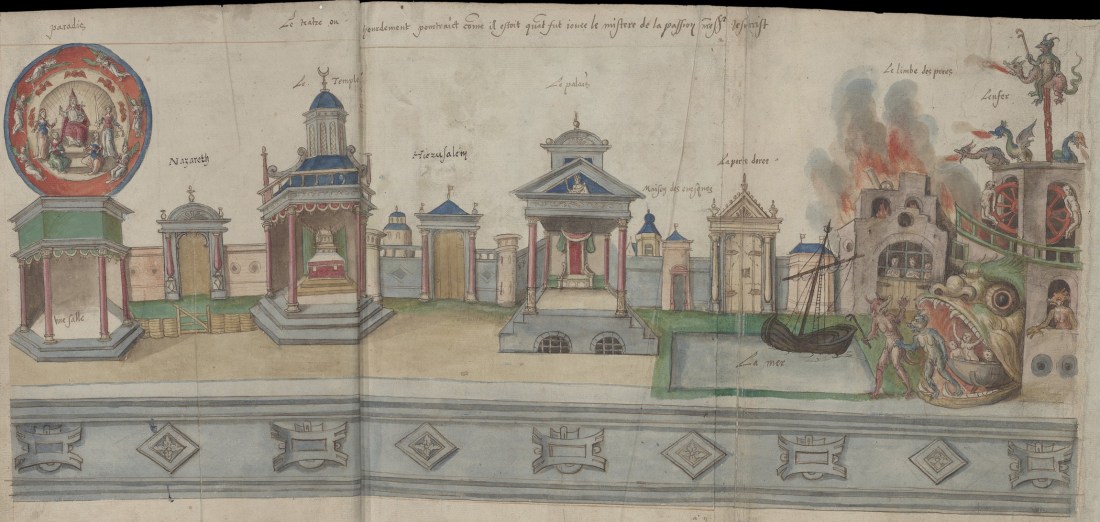 paradis
Le teatre ou hourdement pourtraict come il estoit quāt fut ioue le mistere de la passion nře Sr Jesucrist
Le Temple
Le palais
Le limbe des peres
Lenfer
Nazareth
Hierusalem
Maison des evesques
La porte doree
vne salle
La mer